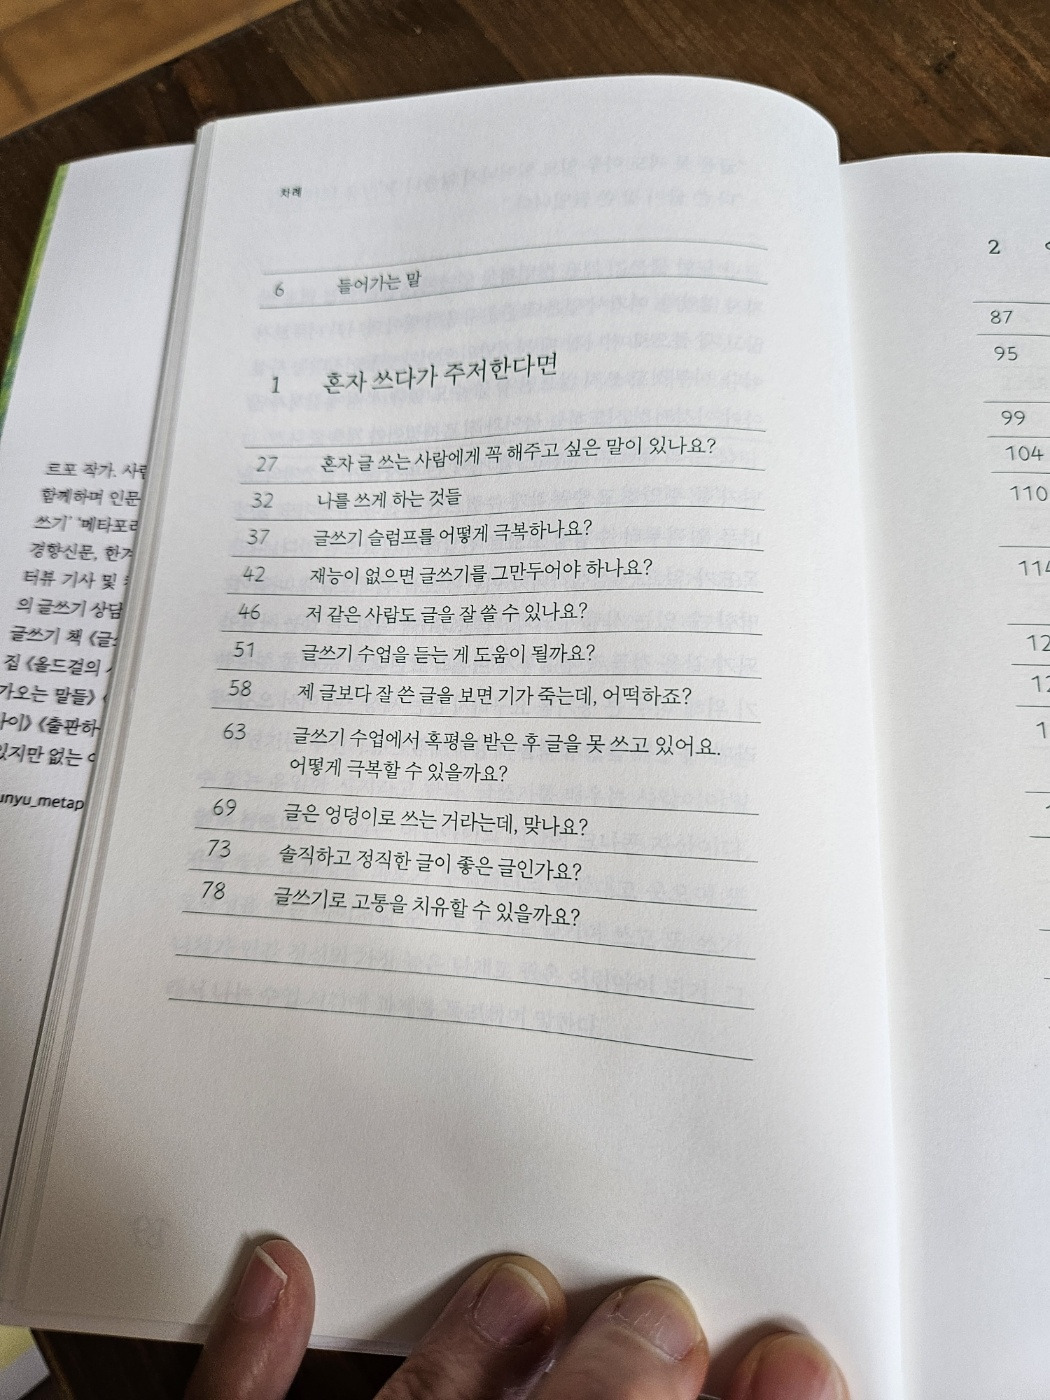 르포 작가.
함께하며 인문
쓰기’
경향신문,
터뷰 기사 및
의 글쓰기 상담
글쓰기 책
집 《올드걸의
가오는 말들》
《출판하
있지만 없는
차례
6 들어가는 말
1 혼자 쓰다가 주저한다면
27 혼자 글 쓰는 사람에게 꼭 해주고 싶은 말이 있나요?
32 나를 쓰게 하는 것들
37 글쓰기 슬럼프를 어떻게 극복하나요?
42 재능이 없으면 글쓰기를 그만두어야 하나요?
46 저 같은 사람도 글을 잘 쓸 수 있나요?
51 글쓰기 수업을 듣는 게 도움이 될까요?
58 제 글보다 잘 쓴 글을 보면 기가 죽는데, 어떡하죠?
63 글쓰기 수업에서 혹평을 받은 후 글을 못 쓰고 있어요.
어떻게 극복할 수 있을까요?
69 글은 엉덩이로 쓰는 거라는데, 맞나요?
73 솔직하고 정직한 글이 좋은 글인가요?
78 글쓰기로 고통을 치유할 수 있을까요?
2
87
95
99
104
110